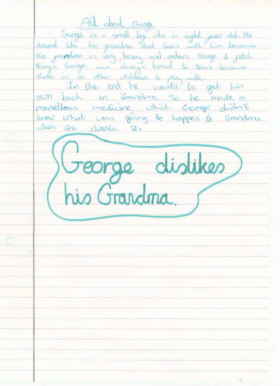 All about George
George is a small boy who is eight years old. He
doesn't like his grandma that lives with him because
his grandma is very bossy and orders George to fetch
things. George was always bored to tears because
there is no other children to play with.
In the end he wants to get his
own back on Grandma. So he made a
marvellous medicine which George didn't
know what was going to happen to Grandma
when she drank it.
George dislikes
his Grandma.